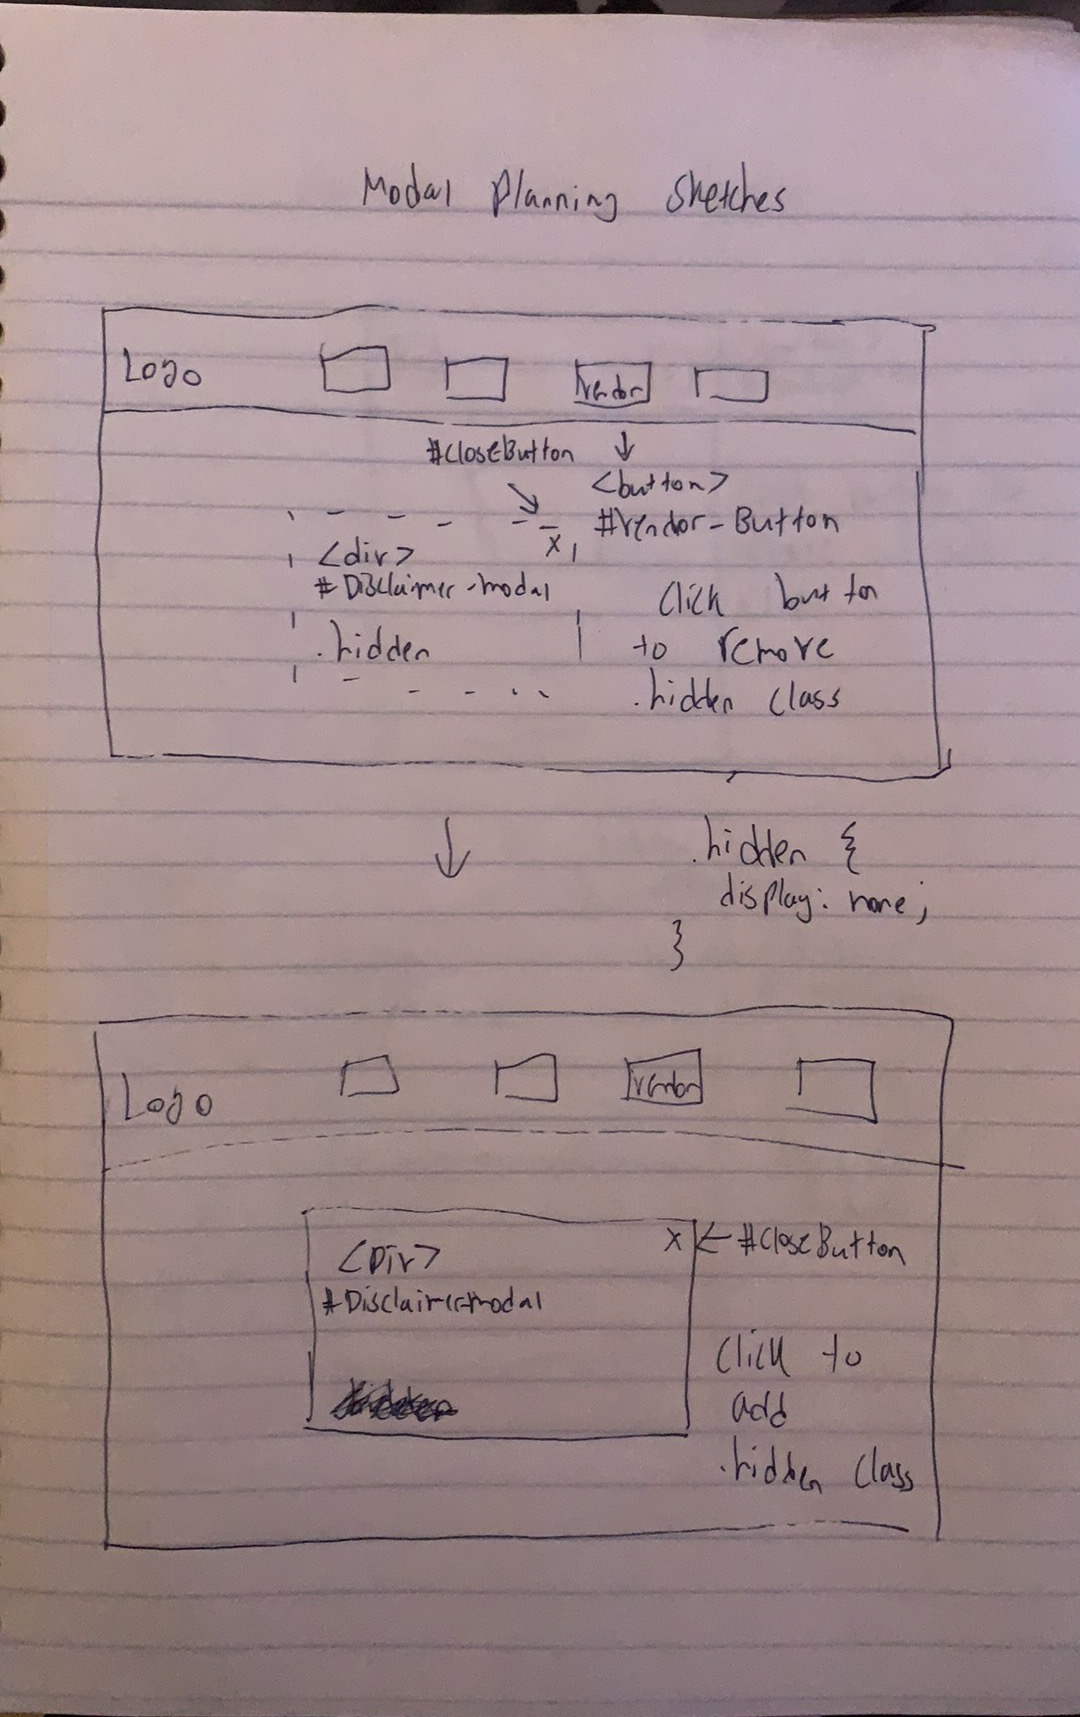 Modal Planning Sketches
Logo
vendor
#CloseButton
<button>
#Vendor-Button
X
<div>
#Disclaimer-modal
.hidden
Click button
to remove
.hidden class
.hidden {
display: none;
}
Logo
vendor
X ← #CloseButton
<Div>
#Disclaimer-modal
Click to
add
.hidden class